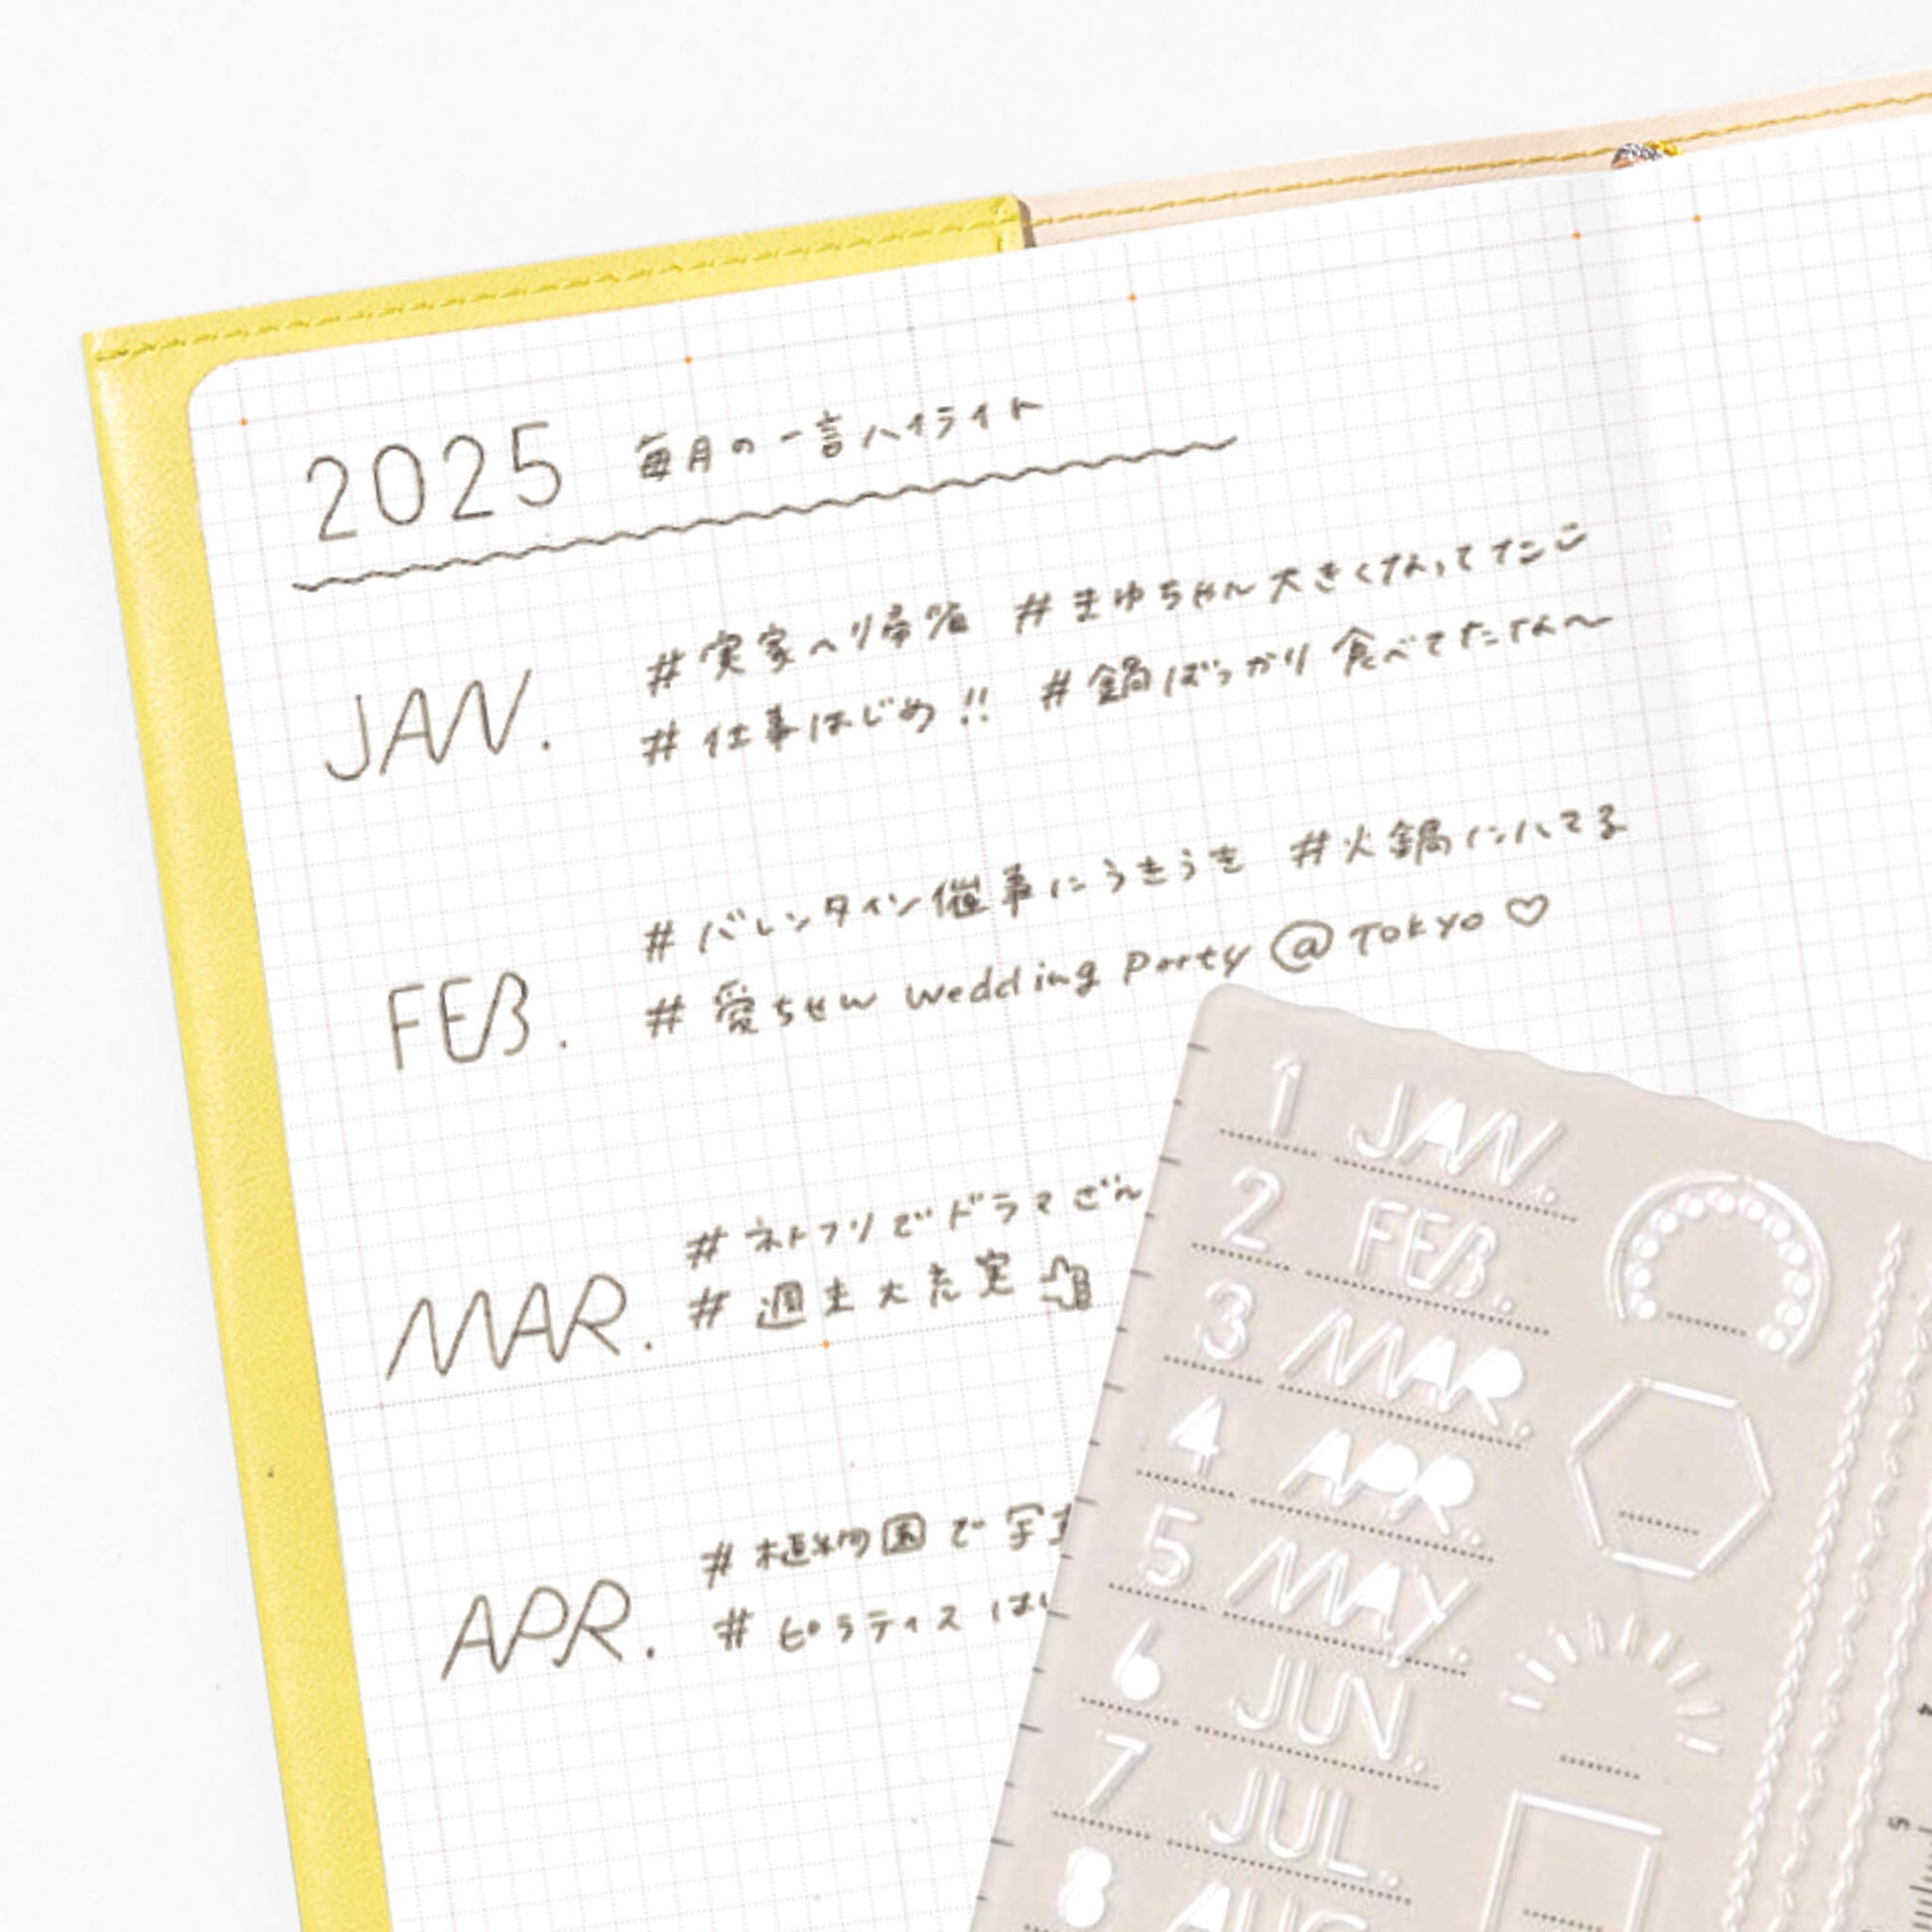 2025 毎月の一言ハイライト
JAN.
#実家へ帰省 #まゆちゃん大きくなってた
#仕事はじめ!! #鍋ばっかり食べてたな〜
FEB.
#バレンタイン催事にうきうき #火鍋にハマる
#愛ちゃん wedding party @TOKYO ♡
MAR.
#ネトフリでドラマざん
#週末大充実
APR.
#植物園で写
#ピラティスは
1 JAN.
2 FEB.
3 MAR.
4 APR.
5 MAY.
6 JUN.
7 JUL.
8 AUG
5